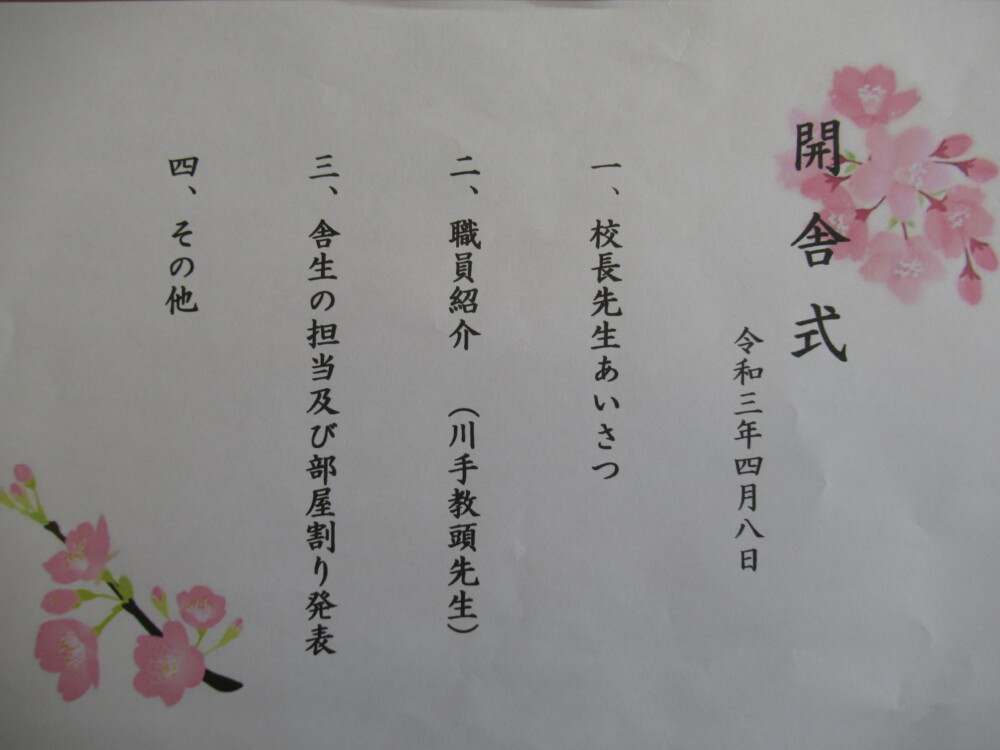 開舎式
令和三年四月八日
一、校長先生あいさつ
二、職員紹介　（川手教頭先生）
三、舎生の担当及び部屋割り発表
四、その他